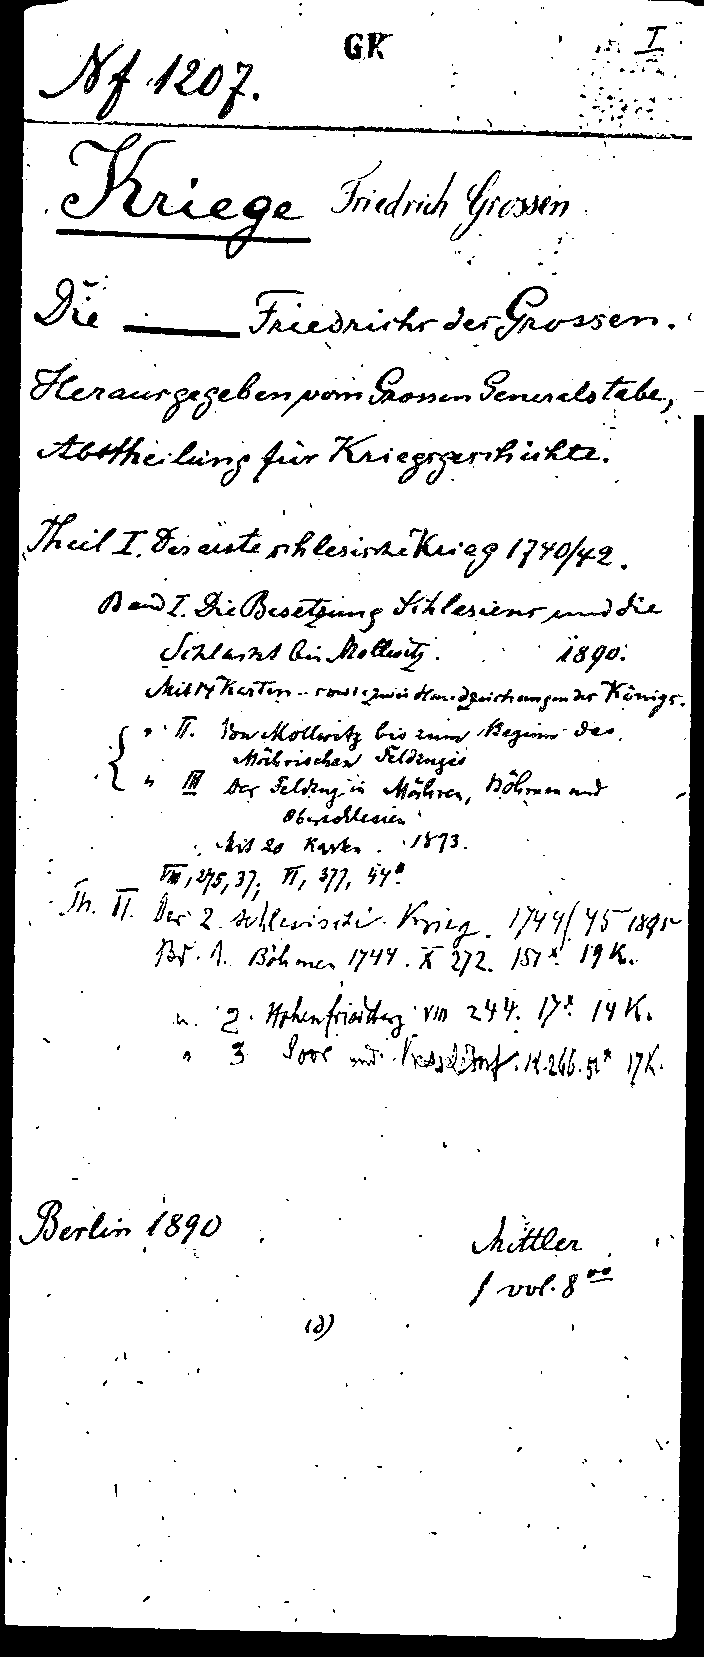 GK
I
Nf 1207.
Kriege Friedrich Grossen
Die —— Friedrichs des Grossen.
Herausgegeben vom Grossen Generalstabe,
Abtheilung für Kriegsgeschichte.
Theil I. Der erste schlesische Krieg 1740/42.
Band I. Die Besetzung Schlesiens und die
Schlacht bei Mollwitz. 1890.
Mit 14 Karten sowie zwei Handzeichnungen des Königs.
" II. Von Mollwitz bis zum Beginn des
Mährischen Feldzuges
" III Der Feldzug in Mähren, Böhmen und
Oberschlesien
Mit 20 Karten. 1893.
VIII, 275, 37, VI, 377, 44*
Th. II. Der 2. schlesische Krieg. 1744/45 1895
Bd. 1. Böhmen 1744. X 272. 151* 19 K.
" 2. Hohenfriedberg VIII 244. 17* 14 K.
" 3 Soor und Kesselsdorf. IX. 266. 51* 17 K.
Berlin 1890
Mittler
1 vol. 8vo
(d)